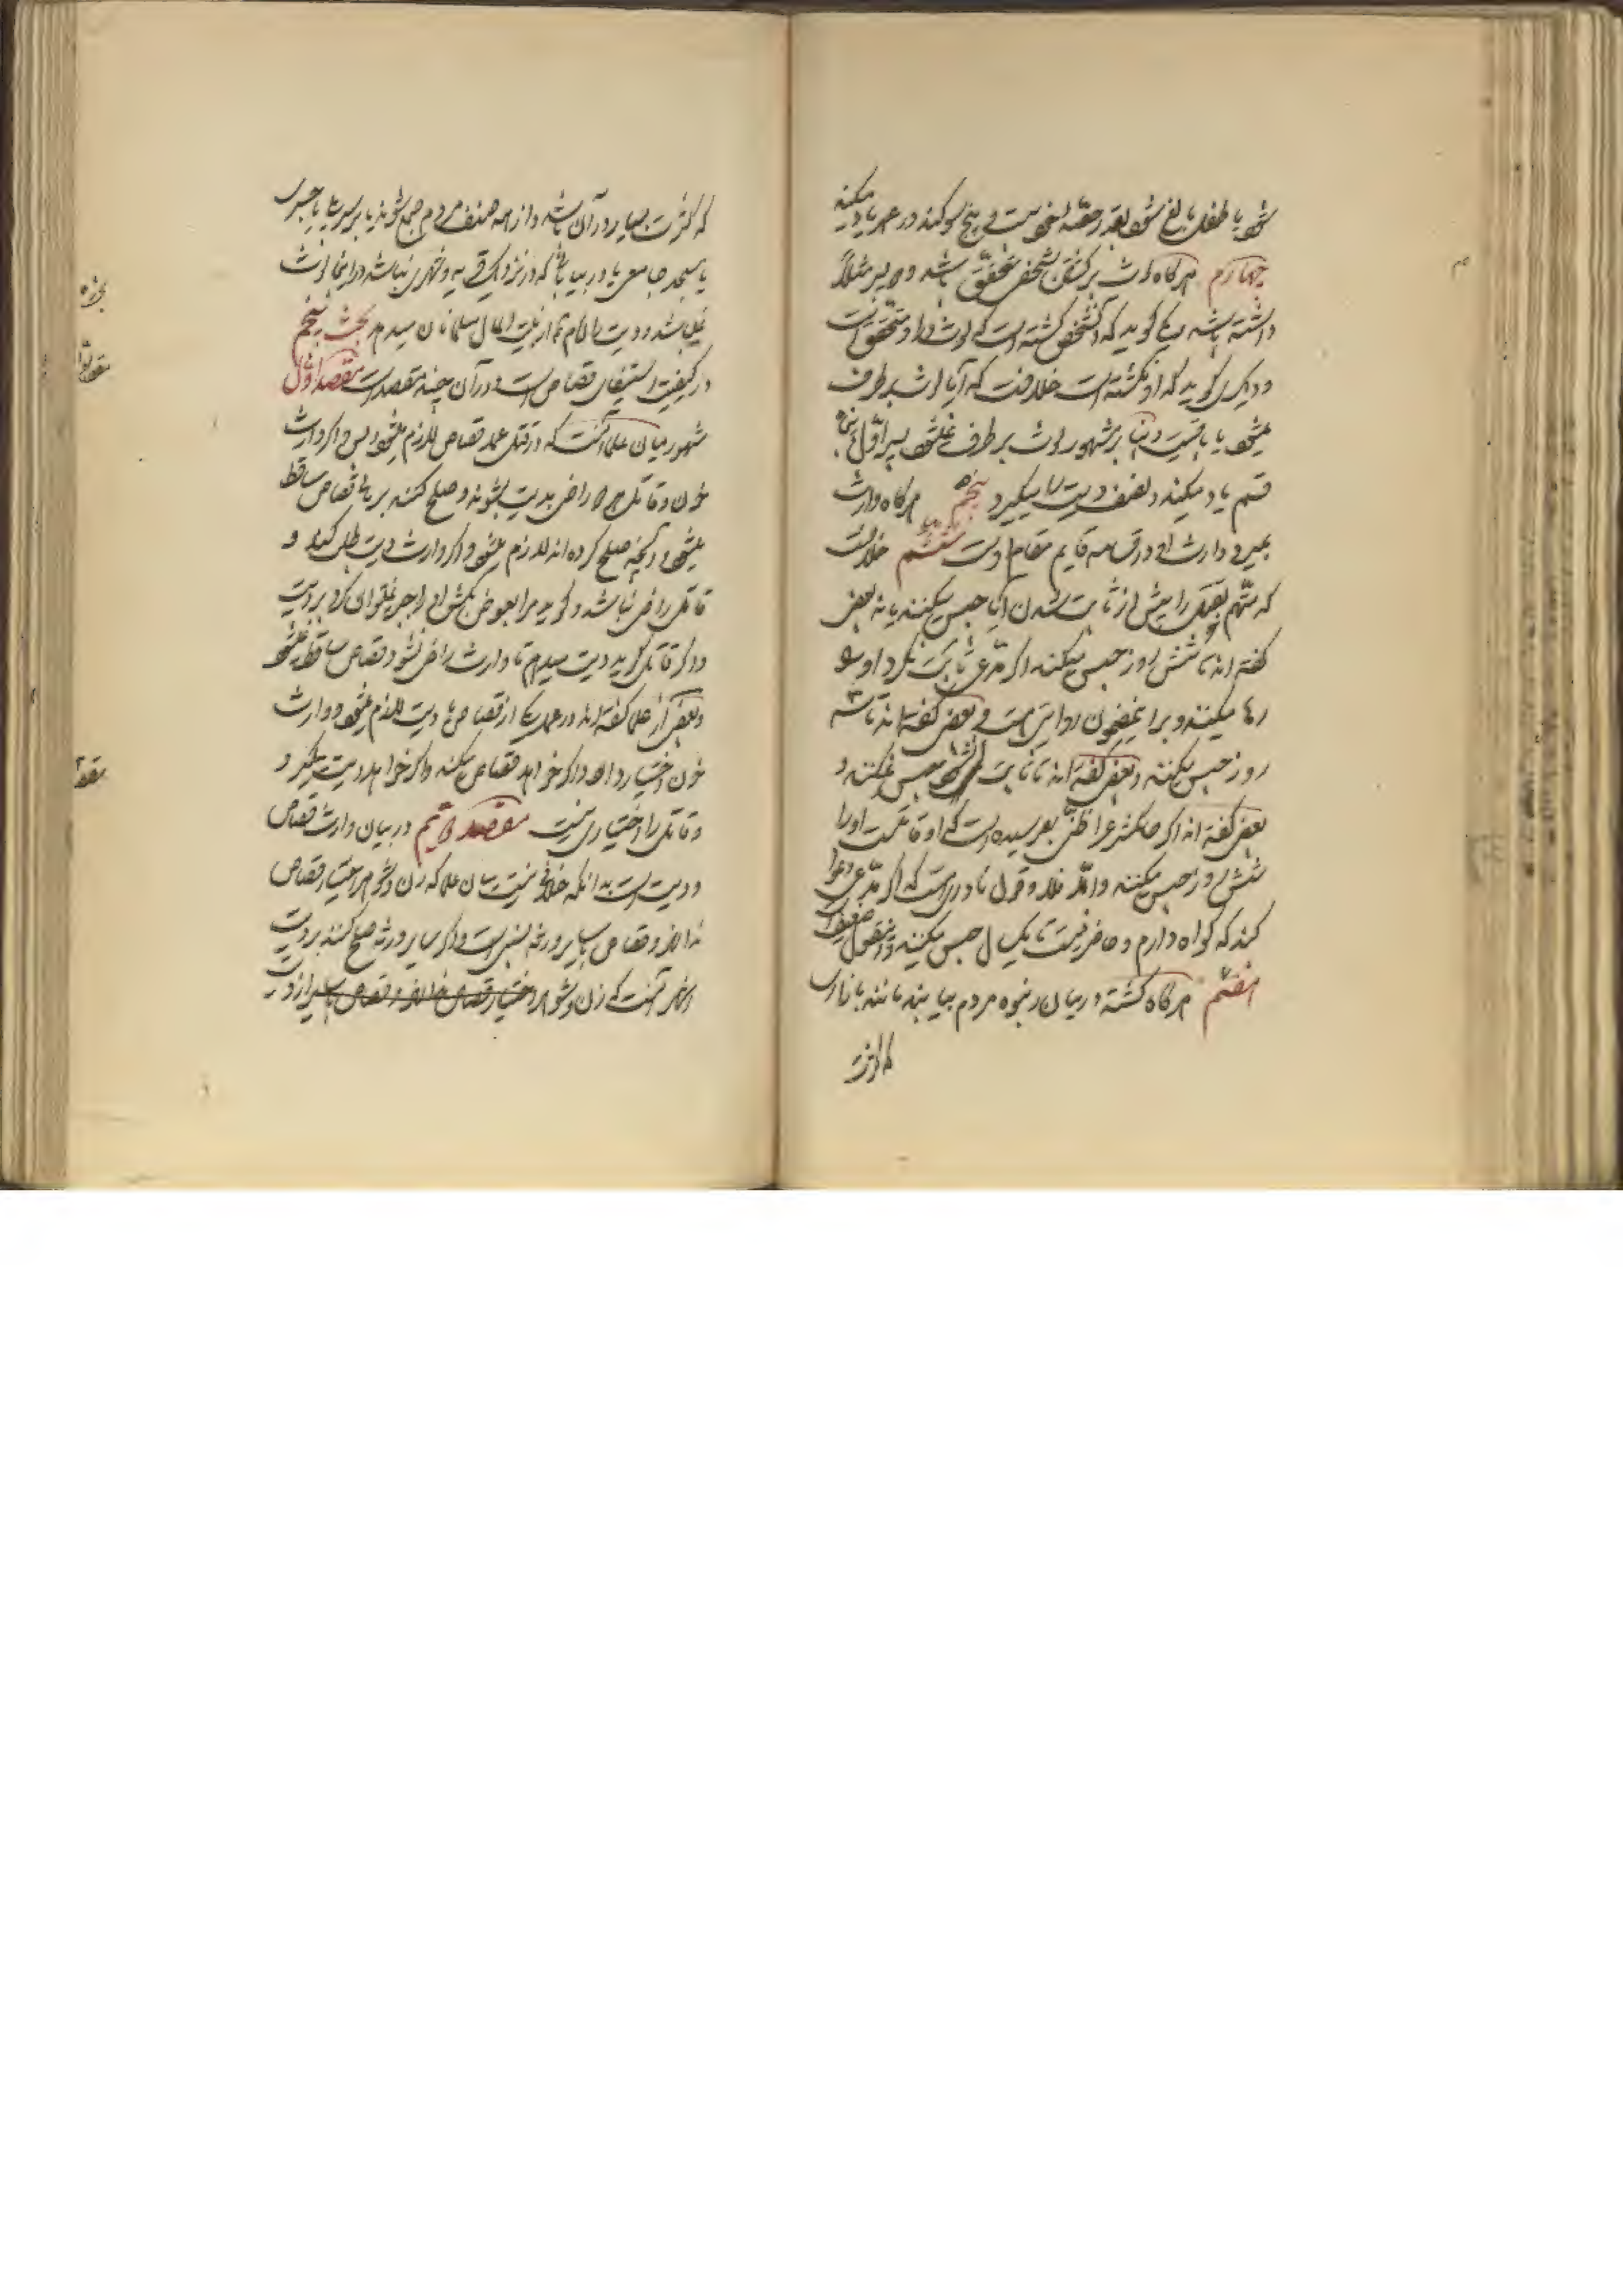 شود یا طفل بالغ شود بقدر حصّه خود بیست و پنج سوکند در عمد یاد میکند
چهارم هرکاه لوث بر کشتن شخصی متحقق باشد و دو پسر مثلاً
داشته باشد یکی کوید که آنشخص کشته است که لوث در او متحقق است
و دیکری کوید که او نکشته است خلافست که آیا لوث برطرف
میشود یا باقیست و بنا بر مشهور لوث برطرف نمیشود پسر اول پنجاه
قسم یاد میکند و نصف دیت را میکیرد پنجم هرکاه وارث
بمیرد وارث او در قسامه قایم مقام اوست ششم خلافست
که متهم بقتل را پیش از ثابت شدن آیا حبس میکنند یا نه بعضی
کفته اند تا شش روز حبس میکنند اکر مدعی ثابت نکرد او را
رها میکنند و برا ینمضمون روایتی هست و بعضی کفته اند تا سه
روز حبس میکنند و بعضی کفته اند تا ثابت نشود حبس نمیکنند و
بعضی کفته اند اکر حاکم شرع را ظنی بهم رسیده است که او قاتلست او را
شش روز حبس میکنند والّا فلا و قول نادری هست که اکر مدعی دعوا
کند که کواه دارم و حاضر نیست تا یکسال حبس میکنند و اینقول ضعیف است
هفتم هرکاه کشته در میان انبوه مردم بیابند مانند بازاری
که کثرت
که کثرت بسیار در آن باشد و از همه صنف مردم جمع شوند یا بر سر پل یا جسری
یا مسجد جامعی یا در بیابانی که در نزدیک قریه و شهری نباشد در اینجا لوث
نمیباشد و دیت را امام از بیت المال مسلمانان میدهد بحث پنجم
در کیفیت استیفای قصاص است و در آن چند مقصد است مقصد اول
مشهور میان علما آنست که در قتل عمد قصاص لازم میشود و بس و اکر وارث
خون و قاتل هر دو راضی بدیت بشوند و صلح کنند بر مالی قصاص ساقط
میشود و آنچه صلح کرده اند لازم میشود و اکر وارث دیت طلب کند و
قاتل راضی نباشد و کوید مرا بعوض بکش او را جبر نمیتوان کرد بر دیت
و اکر قاتل کوید دیت میدهم تا وارث راضی نشود قصاص ساقط نمیشود
و بعضی از علما کفته اند در عمد یکی از قصاص یا دیت لازم میشود و وارث
خون اختیار دارد اکر خواهد قصاص میکند و اکر خواهد دیت میکیرد و
و قاتل را اختیاری نیست مقصد دویم در بیان وارث قصاص
و دیت است بدانکه خلافی نیست میان علما که زن و شوهر اختیار قصاص
ندارند و قصاص با سایر ورثه نسبی است و اکر سایر ورثه صلح کنند بر دیت
اشهر آنست که زن و شوهر اختیار قصاص ندارند و قصاص با سایر از دیت